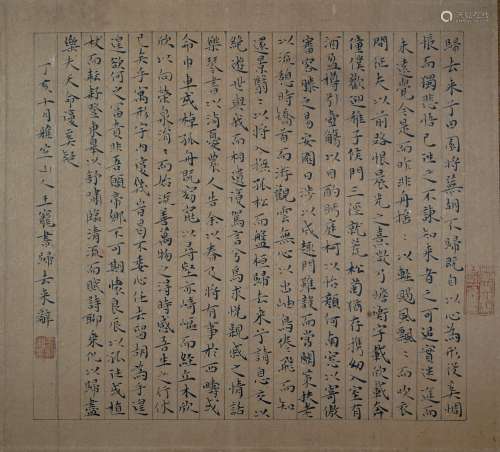 歸去來兮田園將蕪胡不歸既自以心為形役奚惆
悵而獨悲悟已往之不諫知來者之可追實迷途而
未遠覺今是而昨非舟搖〻以輕颺風飄〻而吹衣
問征夫以前路恨晨光之熹微乃瞻衡宇載欣載奔
僮僕歡迎稚子候門三逕就荒松菊猶存攜幼入室有
酒盈樽引壺觴以自酌眄庭柯以怡顏倚南窗以寄傲
審容膝之易安園日涉以成趣門雖設而常關策扶老
以流憩時矯首而游觀雲無心以出岫鳥倦飛而知
還景翳〻以將入撫孤松而盤桓歸去來兮請息交以
絕遊世與我而相遺復駕言兮焉求悅親戚之情話
樂琴書以消憂農人告余以春及將有事於西疇或
命巾車或棹孤舟既窈窕以尋壑亦崎嶇而經丘木欣
欣以向榮泉涓〻而始流善萬物之得時感吾生之行休
已矣乎寓形宇內復幾時曷不委心任去留胡為乎遑
遑欲何之富貴非吾願帝鄉不可期懷良辰以孤往或植
杖而耘耔登東皋以舒嘯臨清流而賦詩聊乘化以歸盡
樂夫天命復奚疑
丁亥十月雅宜山人王寵書歸去來辭